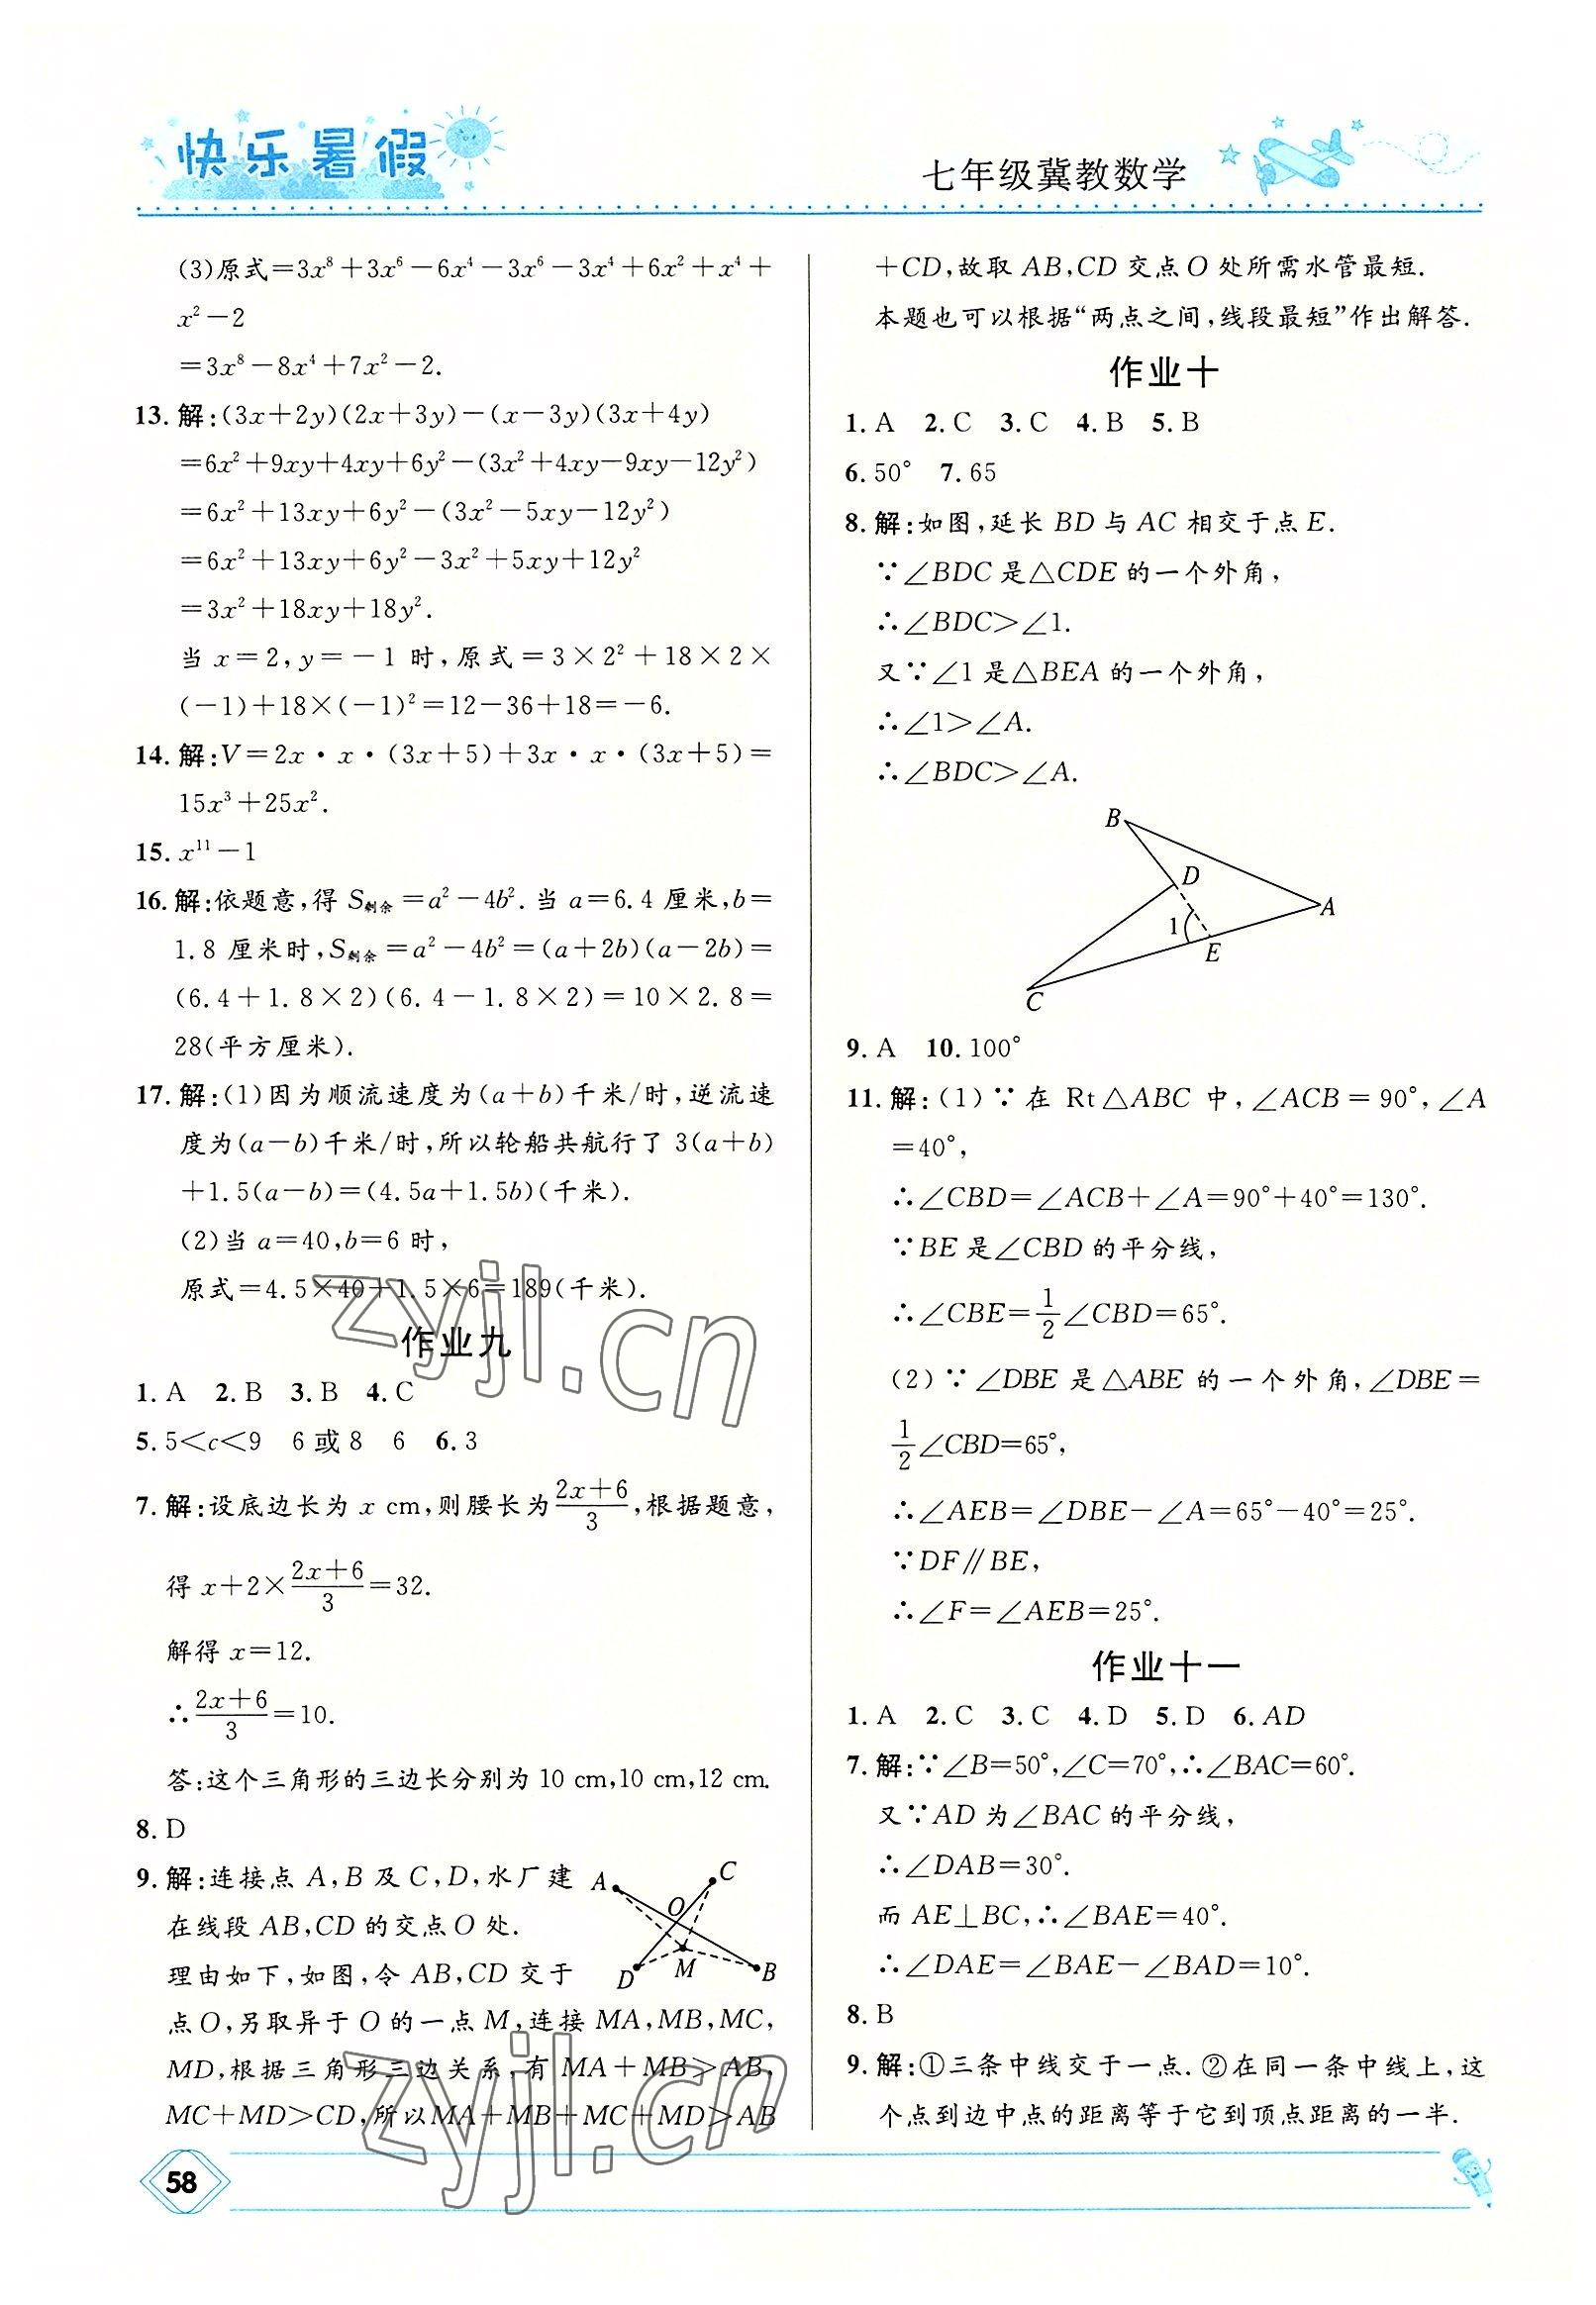 快乐暑假
七年级冀教数学
(3)原式=3x⁸+3x⁶-6x⁴-3x⁶-3x⁴+6x²+x⁴+
x²-2
=3x⁸-8x⁴+7x²-2.
13.解:(3x+2y)(2x+3y)-(x-3y)(3x+4y)
=6x²+9xy+4xy+6y²-(3x²+4xy-9xy-12y²)
=6x²+13xy+6y²-(3x²-5xy-12y²)
=6x²+13xy+6y²-3x²+5xy+12y²
=3x²+18xy+18y².
当 x=2,y=-1 时,原式=3×2²+18×2×
(-1)+18×(-1)²=12-36+18=-6.
14.解:V=2x·x·(3x+5)+3x·x·(3x+5)=
15x³+25x².
15.x¹¹-1
16.解:依题意,得 S剩余=a²-4b².当 a=6.4 厘米,b=
1.8 厘米时,S剩余=a²-4b²=(a+2b)(a-2b)=
(6.4+1.8×2)(6.4-1.8×2)=10×2.8=
28(平方厘米).
17.解:(1)因为顺流速度为(a+b)千米/时,逆流速
度为(a-b)千米/时,所以轮船共航行了 3(a+b)
+1.5(a-b)=(4.5a+1.5b)(千米).
(2)当 a=40,b=6 时,
原式=4.5×40+1.5×6=189(千米).
zyjl.cn
作业九
1.A 2.B 3.B 4.C
5.5<c<9 6或8 6 6.3
7.解:设底边长为 x cm,则腰长为(2x+6)/3,根据题意,
得 x+2×(2x+6)/3=32.
解得 x=12.
∴(2x+6)/3=10.
答:这个三角形的三边长分别为 10 cm,10 cm,12 cm.
8.D
9.解:连接点 A,B 及 C,D,水厂建
在线段 AB,CD 的交点 O 处.
理由如下,如图,令 AB,CD 交于
A C O D M B
点O,另取异于 O 的一点 M,连接 MA,MB,MC,
MD,根据三角形三边关系,有 MA+MB>AB,
MC+MD>CD,所以MA+MB+MC+MD>AB
zyjl.cn
+CD,故取 AB,CD 交点 O 处所需水管最短.
本题也可以根据“两点之间,线段最短”作出解答.
作业十
1.A 2.C 3.C 4.B 5.B
6.50° 7.65
8.解:如图,延长 BD 与 AC 相交于点 E.
∵∠BDC 是△CDE 的一个外角,
∴∠BDC>∠1.
又∵∠1 是△BEA 的一个外角,
∴∠1>∠A.
∴∠BDC>∠A.
B
D
A
1
E
C
9.A 10.100°
11.解:(1)∵在 Rt△ABC 中,∠ACB=90°,∠A
=40°,
∴∠CBD=∠ACB+∠A=90°+40°=130°.
∵BE 是∠CBD 的平分线,
∴∠CBE=1/2∠CBD=65°.
(2)∵∠DBE 是△ABE 的一个外角,∠DBE=
1/2∠CBD=65°,
∴∠AEB=∠DBE-∠A=65°-40°=25°.
∵DF∥BE,
∴∠F=∠AEB=25°.
作业十一
1.A 2.C 3.C 4.D 5.D 6.AD
7.解:∵∠B=50°,∠C=70°,∴∠BAC=60°.
又∵AD 为∠BAC 的平分线,
∴∠DAB=30°.
而 AE⊥BC,∴∠BAE=40°.
∴∠DAE=∠BAE-∠BAD=10°.
8.B
9.解:①三条中线交于一点.②在同一条中线上,这
个点到边中点的距离等于它到顶点距离的一半.
58